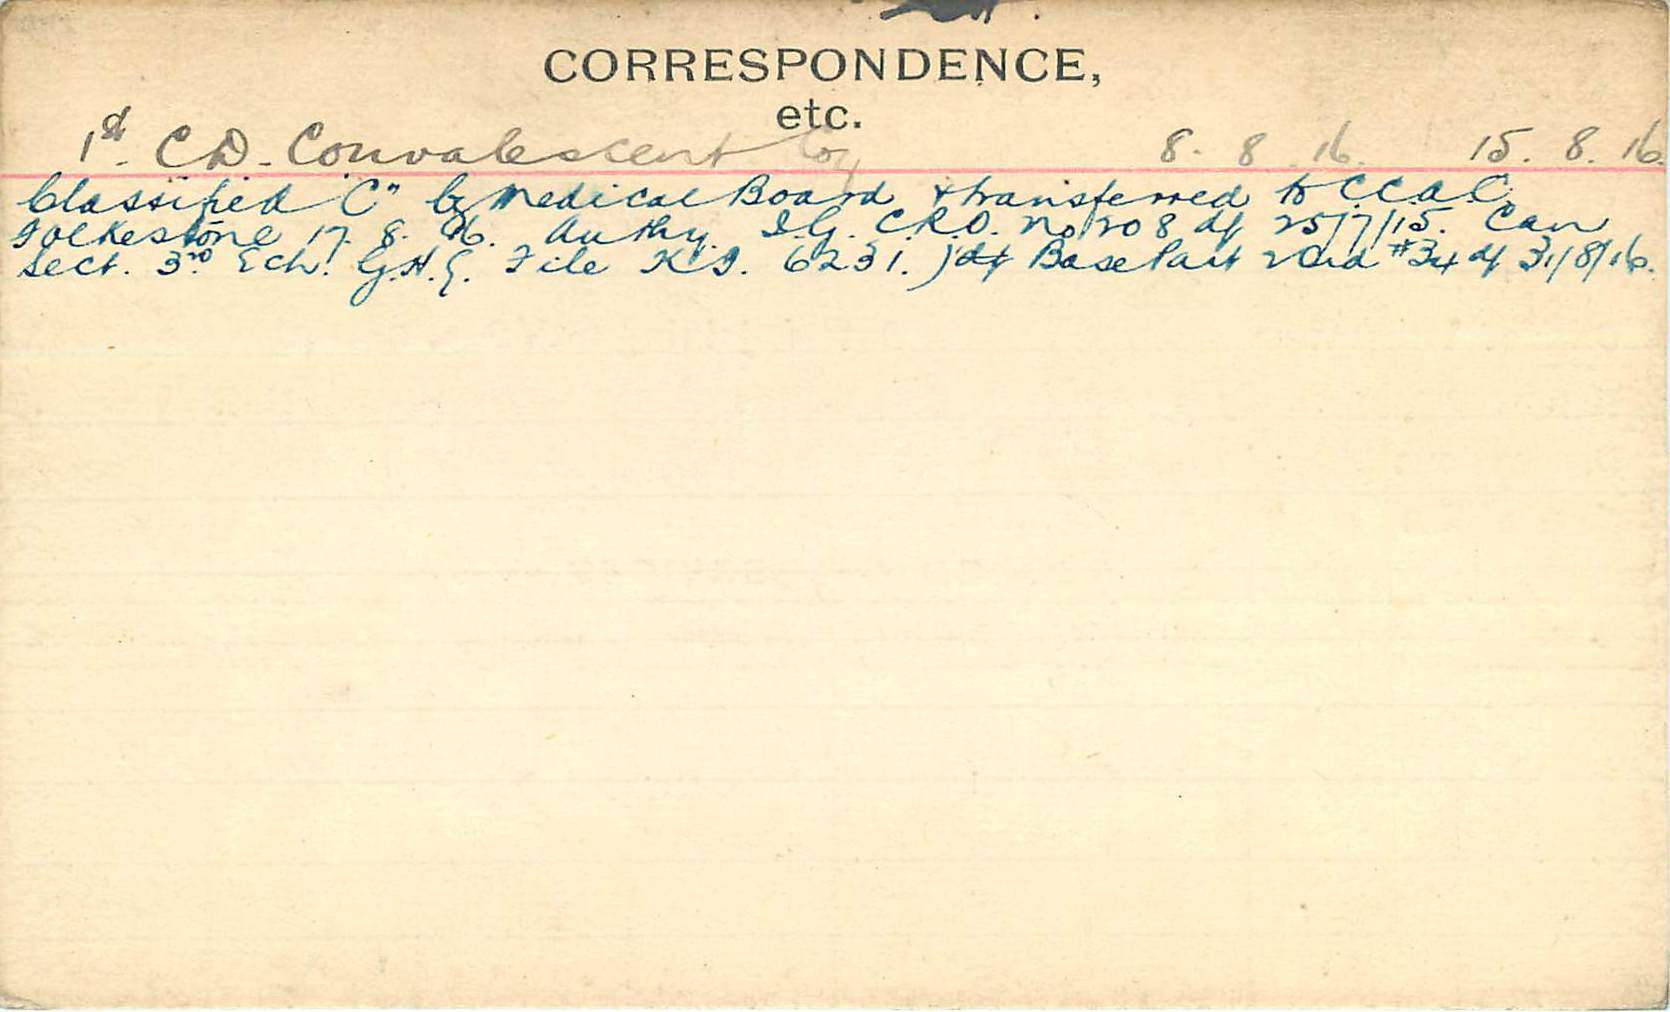 CORRESPONDENCE,
etc.
1st. C.D. Convalescent Coy 8. 8. 16. 15. 8. 16.
Classified "C" by Medical Board & transferred to C.C.A.C.
Folkestone 17. 8. 16. Authy. I.G. C.R.O. No 208 df 25/7/15. Can
Sect. 3rd Ech. G.H.Q. File K.I. 6231.) df Base Part 2 Ord #34 df 31/8/16.